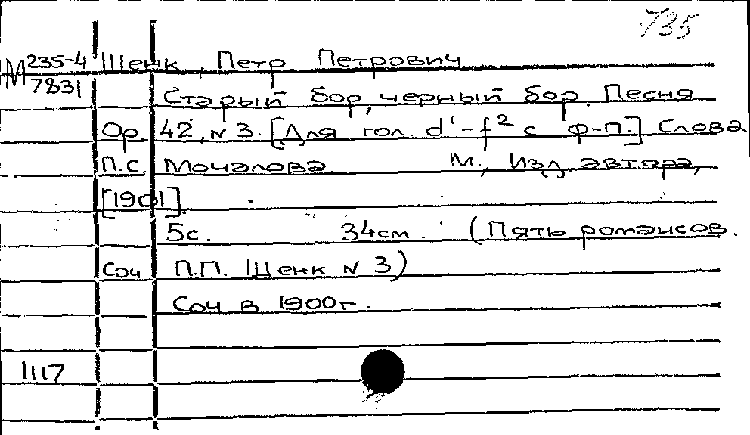 735
М 235-4 Шенк, Петр Петрович
7831
Старый бор, черный бор. Песня
Op. 42, N 3. [Для гол. d¹-f² с ф-п.] Слова
П.С. Мочалова М., Изд. автора,
[1901]
5с. 34см. (Пять романсов.
Соч. П.П. Шенк N 3)
Соч в 1900г.
1117